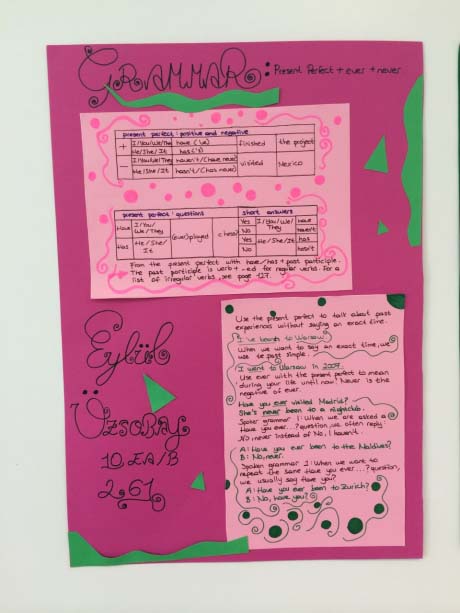 GRAMMAR: Present Perfect + ever + never
present perfect: positive and negative
+ I/You/We/They have ('ve) finished the project
He/She/It has ('s)
I/You/We/They haven't/(have never) visited Mexico
He/She/It hasn't/(has never)
present perfect: questions short answers
Have I/You/We/They (ever) played chess? Yes I/You/We/They have
No haven't
Has He/She/It Yes He/She/It has
No hasn't
From the present perfect with have/has + past participle.
The past participle is verb + -ed for regular verbs. For a
list of irregular verbs, see page 127.
Use the present perfect to talk about past
experiences without saying an exact time.
I've been to Warsaw.
When we want to say an exact time, we
use te past simple.
I went to Warsaw in
Use ever with the present perfect to mean
during your life until now. Never is the
negative of ever.
Have you ever visited Madrid?
She's never been to a nightclub.
Spoken grammar 1: When we are asked a
Have you ever...? question, we often reply
No, never instead of No, I haven't.
A: Have you ever been to the Maldives?
B: No, never.
Spoken grammar 2: When we want to
repeat the same Have you ever...? question,
we usually say Have you?
A: Have you ever been to Zurich?
B: No, have you?
Eylül
Üzsoray
10 EA/B
261